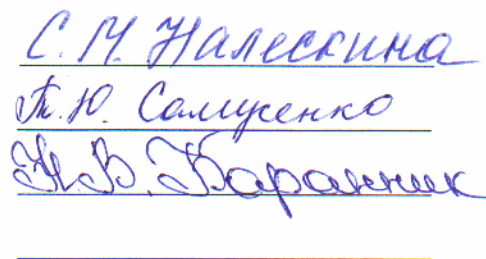 С. М. Налескина
Т. Ю. Самусенко
Н. В. Баранник